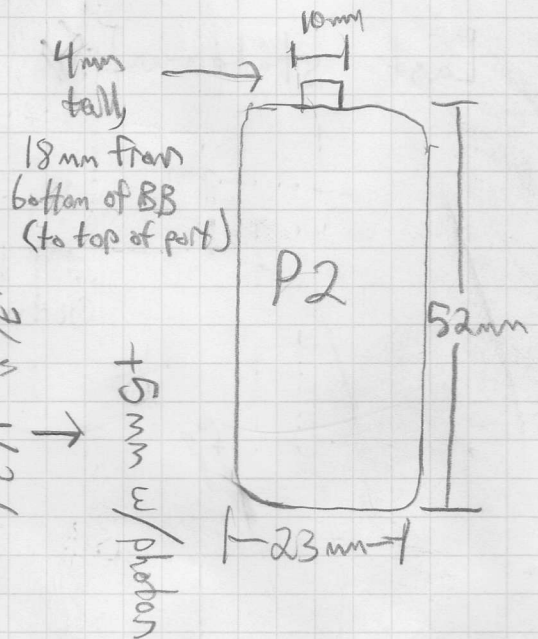 10mm
4mm
tall,
18mm from
bottom of BB
(to top of part)
P2
52mm
+5mm w/photon
23mm